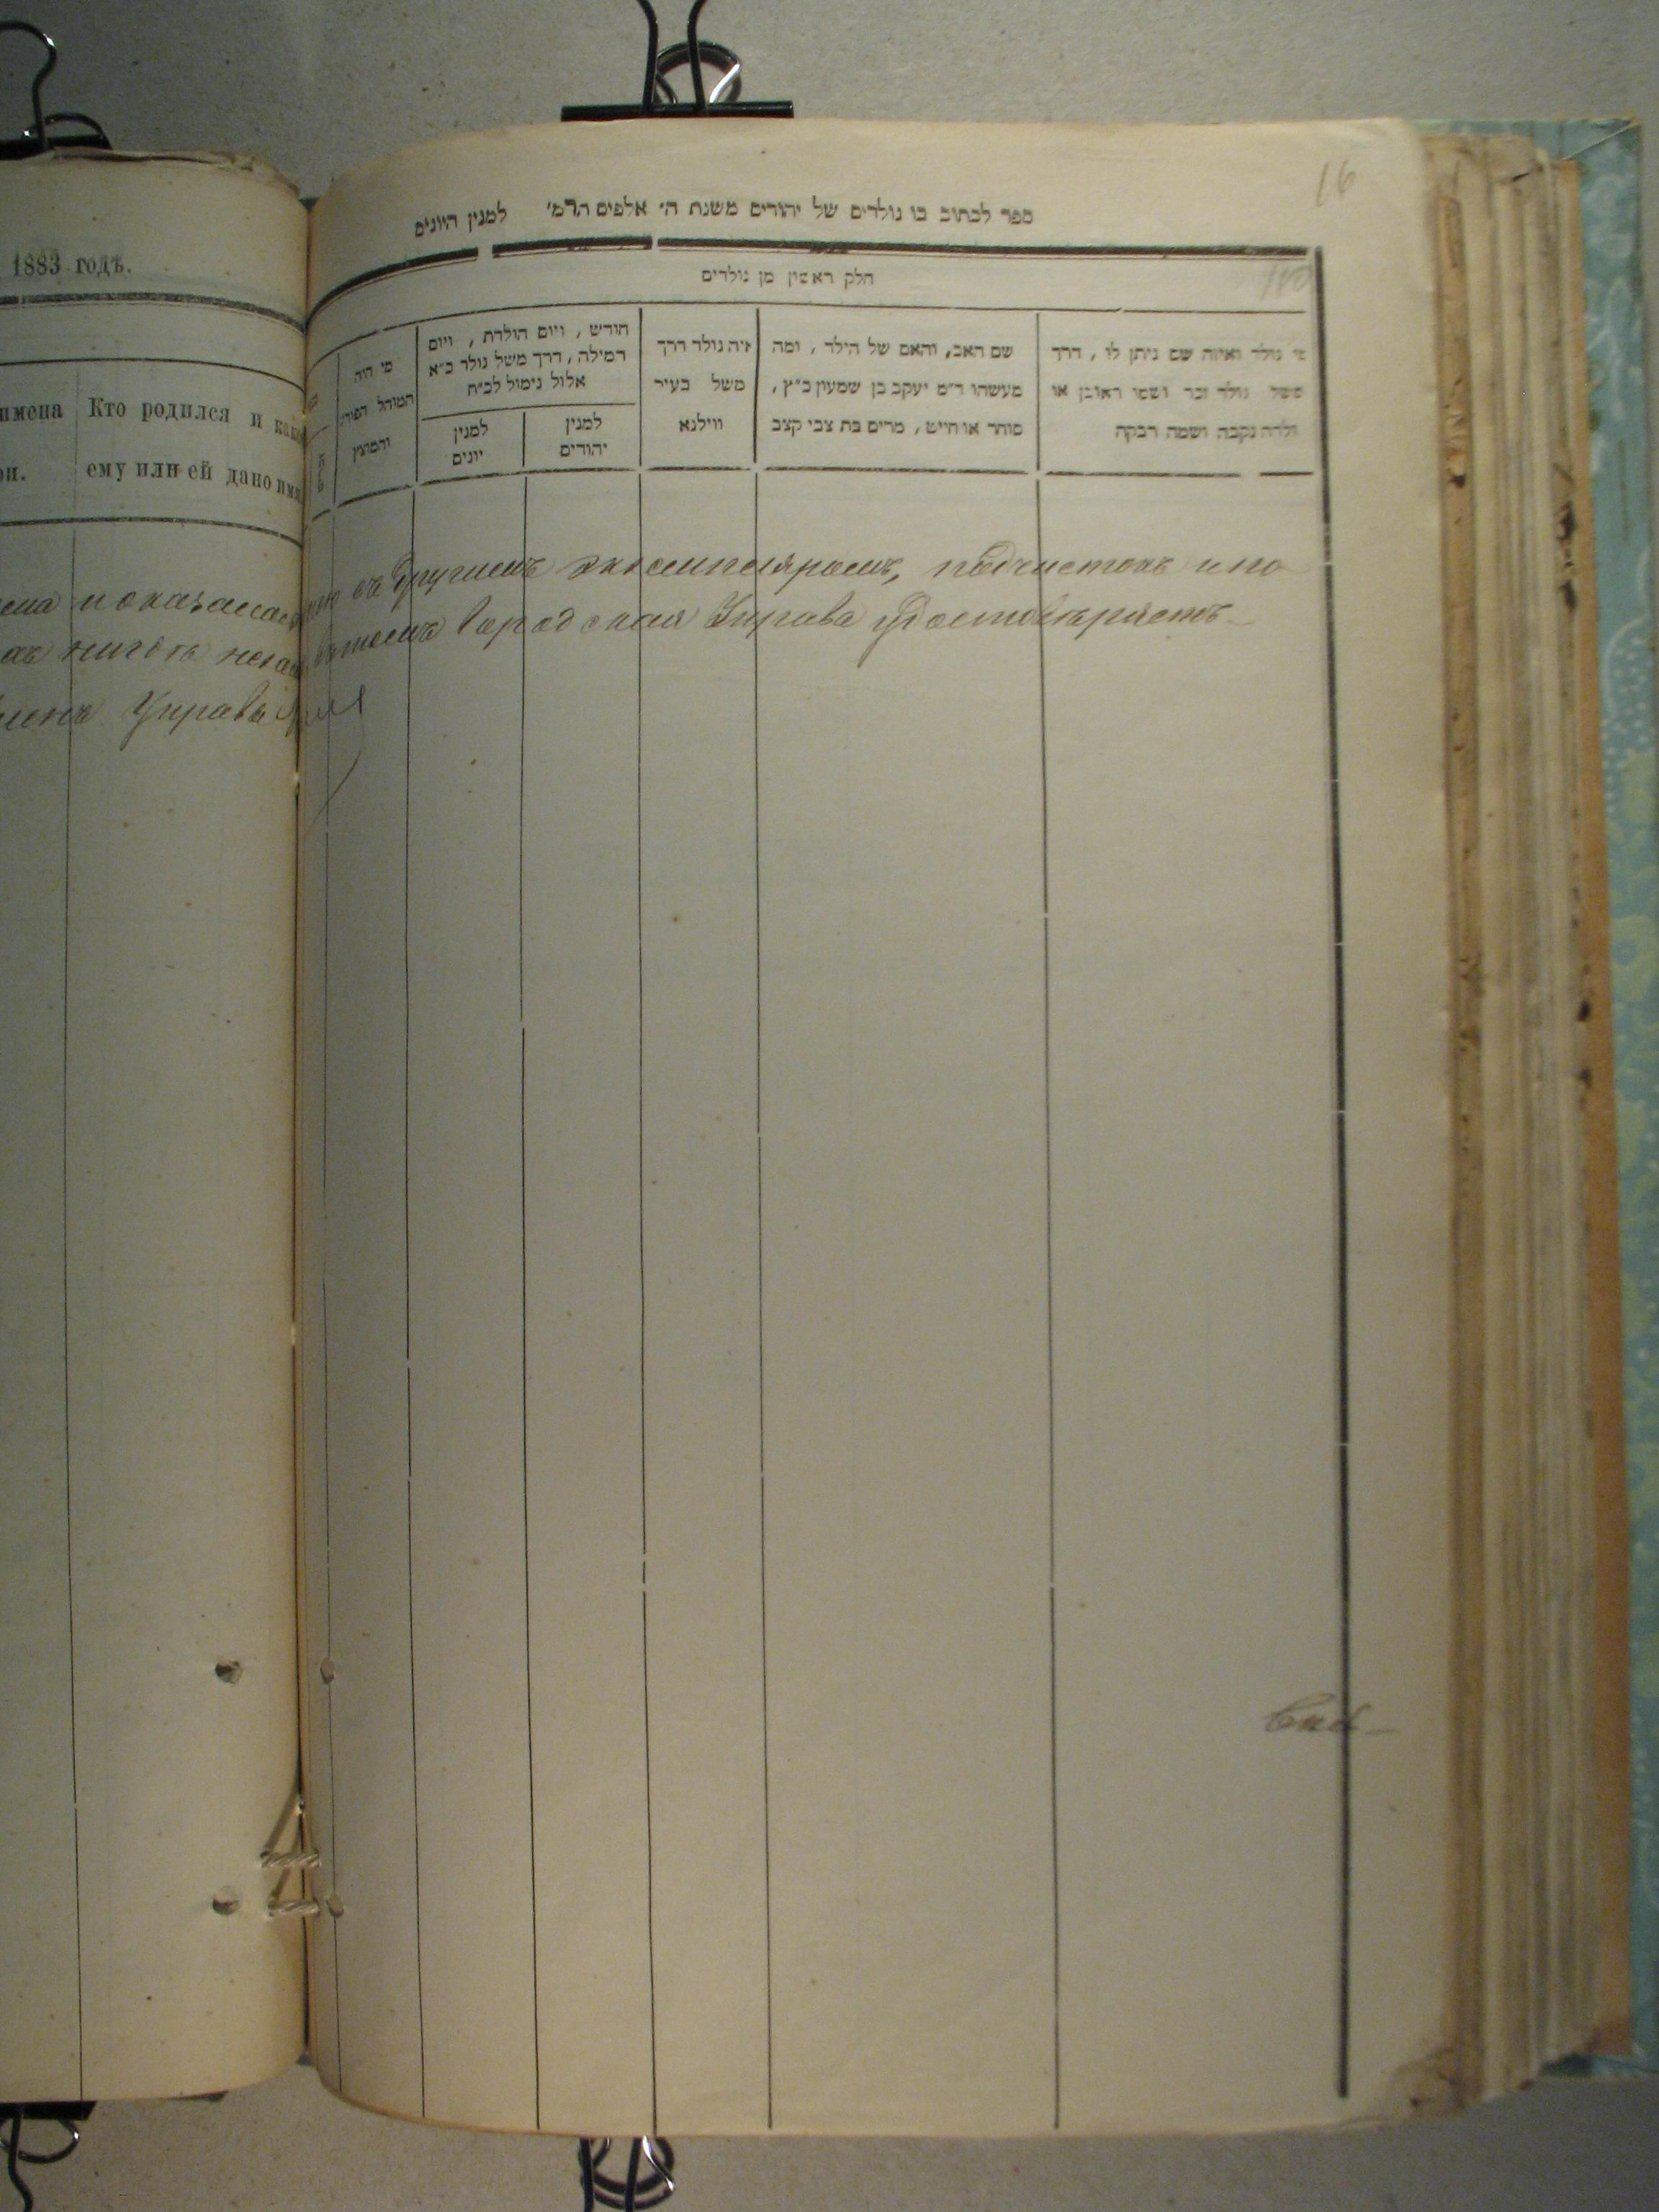 1883 годъ.
имена
Кто родился и како
ему или ей дано имя
16
ספר לכתוב בו נולדים של יהודים משנת ה׳ אלפים תרמ׳ למנין היונים
חלק ראשון מן נולדים
מי נולד ואיזה שם ניתן לו, דרך
משל נולד זכר ושמו ראובן או
נולדה נקבה ושמה רבקה
שם האב, והאם של הילד, ומה
מעשהו ד״מ יעקב בן שמעון כ״ץ,
סוחר או חייט, מרים בת צבי קצב
איה נולד דרך
משל בעיר
ווילנא
חודש, ויום הולדת, ויום
המילה, דרך משל נולד כ״א
אלול נימול לכ״ח
למנין
יהודים
למנין
יונים
מי היה
המוהל הפורע
והמוצץ
показалась съ другимъ экземпляромъ, подчистокъ и по
въ томъ Городская Управа удостовѣряетъ
Управы